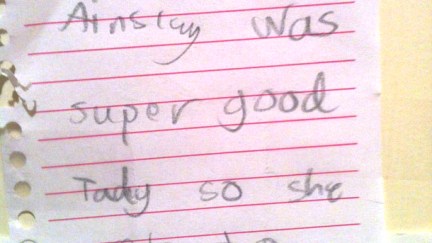 Ainsley was
super good
Tady so she